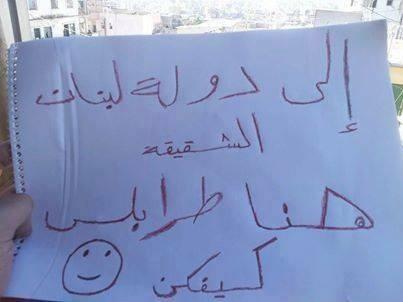 إلى دولة لبنان
الشقيقة
هنا طرابلس
كيفكن